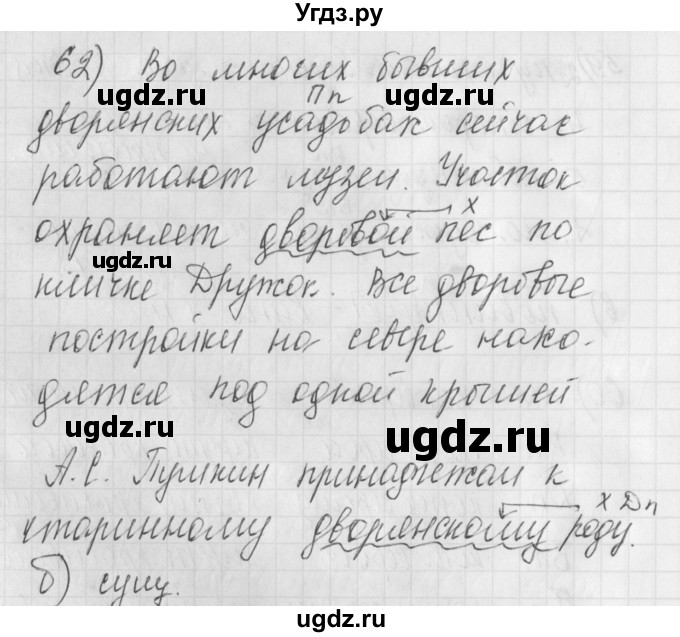 Угдз.ру
62) Во многих бывших
ugdz.ru ugdz.ru
Пп
дворянских усадьбах сейчас
работают музеи. Участок
х
охраняет дворовой пес по
ugdz.ru
кличке Дружок. Все дворовые
постройки на севере нахо-
дятся под одной крышей
ugdz.ru ugdz.ru
А.С. Пушкин принадлежал к
х Дп
старинному дворянскому роду.
б) сущ.
ugdz.ru